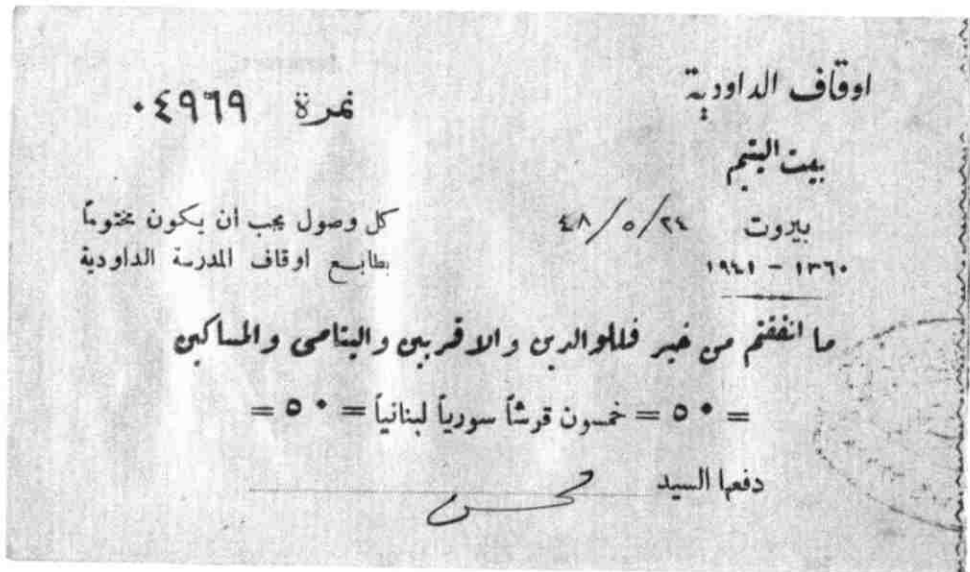 اوقاف الداودية
نمرة ٠٤٩٦٩
بيت اليتيم
بيروت ٢٤/٥/٤٨
١٣٦٠ - ١٩٤١
كل وصول يجب ان يكون مختوماً
بطابع اوقاف المدرسة الداودية
ما انفقتم من خير فللوالدين والاقربين واليتامى والمساكين
= ٥٠ = خمسون قرشاً سورياً لبنانياً = ٥٠ =
دفعها السيد